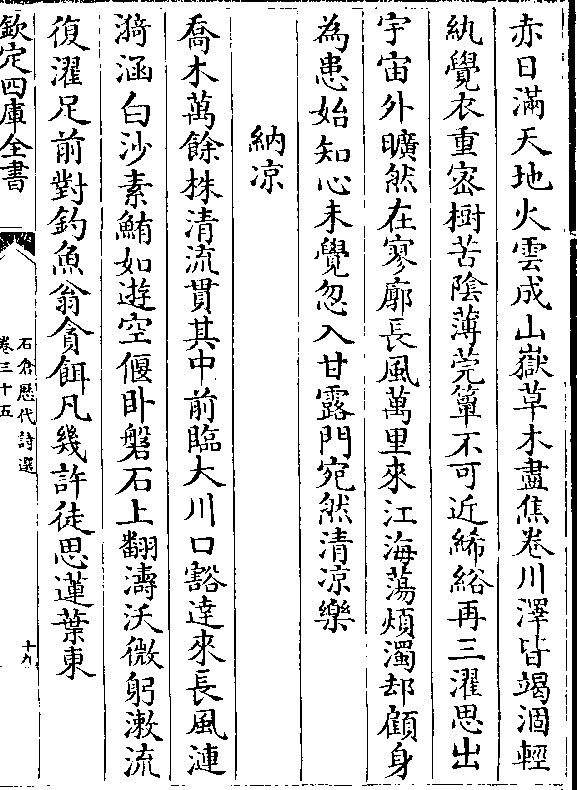 赤日滿天地火雲成山嶽草木盡焦卷川澤皆竭涸輕
紈覺衣重宻樹苦陰薄莞簟不可近絺綌再三濯思出
宇宙外曠然在寥廓長風萬里來江海蕩煩濁却顧身
為患始知心未覺忽入甘露門宛然清凉樂
納凉
喬木萬餘株清流貫其中前臨大川口豁達來長風漣
漪涵白沙素鮪如遊空偃卧盤石上翻濤沃微躬漱流
復濯足前對釣魚翁貪餌凡幾許徒思蓮葉東
欽定四庫全書
石倉歴代詩選
卷三十五
十九